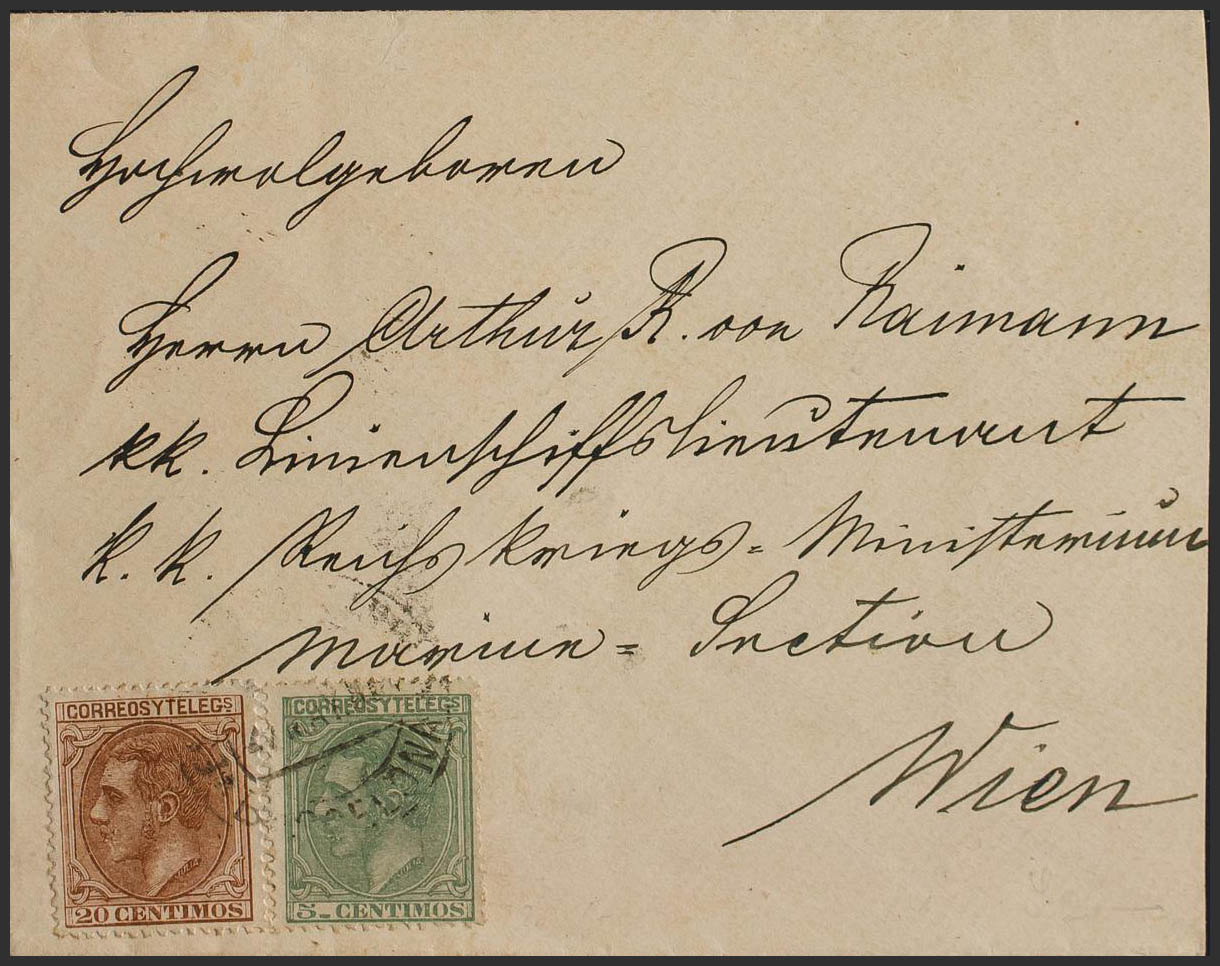 Hochwolgeboren
Herrn Arthur R. von Raimann
k k. Linienschiffslieutenant
k. k. Reichskriegs = Ministerium
Marine = Section
Wien
CORREOS Y TELEGS
20 CENTIMOS
CORREOS Y TELEGS
5 CENTIMOS